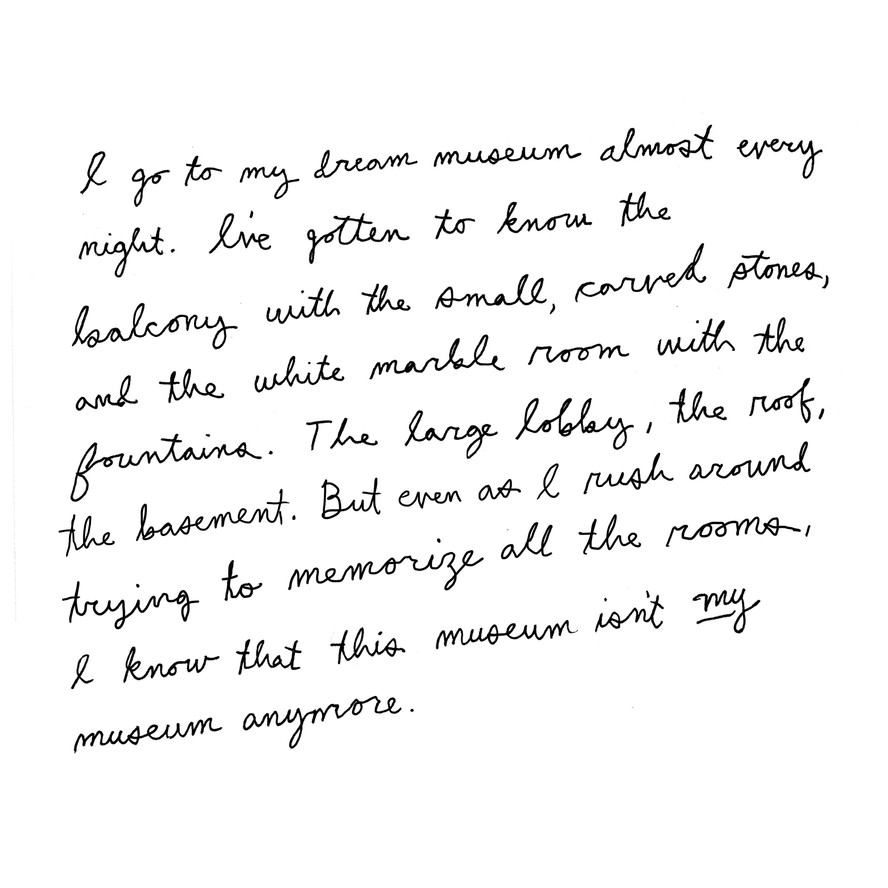 I go to my dream museum almost every
night. I've gotten to know the
balcony with the small, carved stones,
and the white marble room with the
fountains. The large lobby, the roof,
the basement. But even as I rush around
trying to memorize all the rooms,
I know that this museum isn't my
museum anymore.